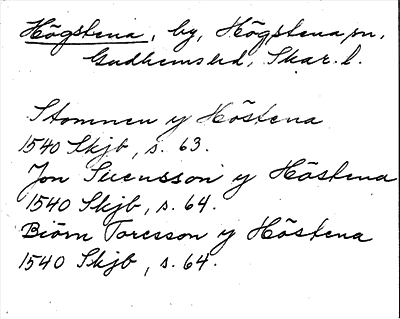 Högstena, by, Högstena sn,
Gudhems hd, Skar. l.
Stomnen y Höstena
1540 Skjb, s. 63.
Jon Suensson y Höstena
1540 Skjb, s. 64.
Biörn Toresson y Höstena
1540 Skjb, s. 64.